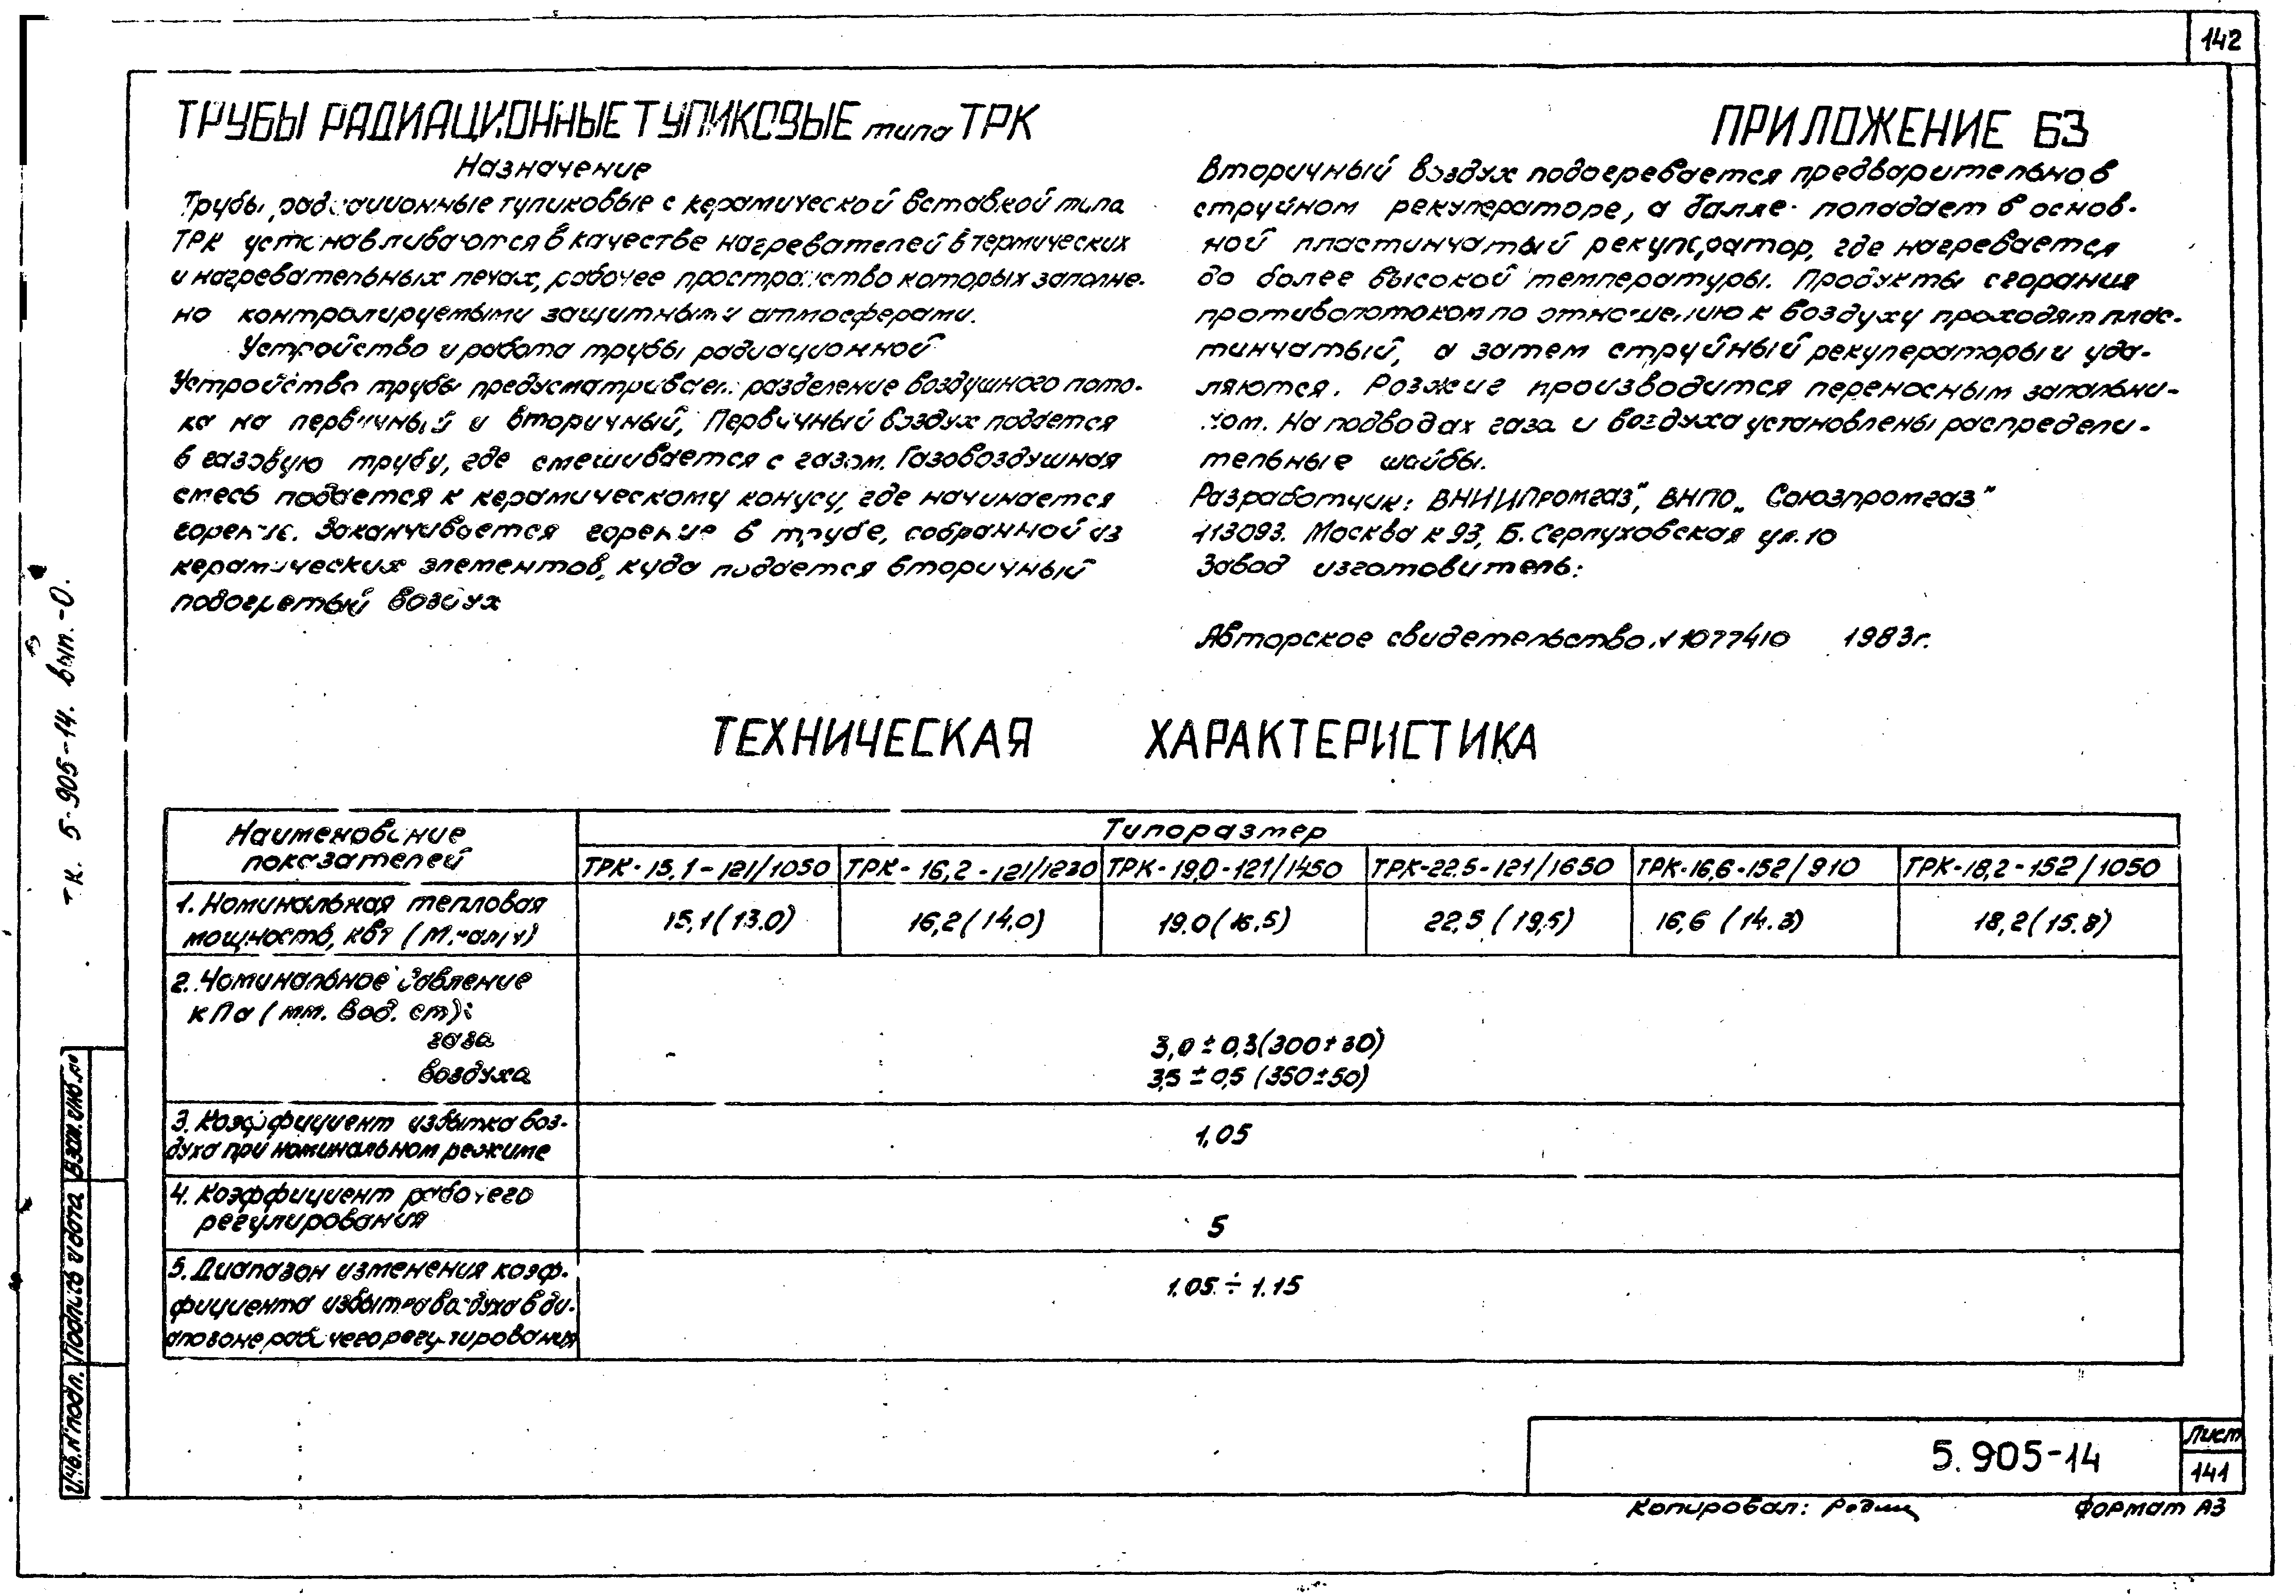 142
ТРУБЫ РАДИАЦИОННЫЕ ТУПИКОВЫЕ типа ТРК
Назначение
Трубы радиационные тупиковые с керамической вставкой типа
ТРК устанавливаются в качестве нагревателей в термических
и нагревательных печах, рабочее пространство которых заполне-
но контролируемыми защитными атмосферами.
Устройство и работа трубы радиационной
Устройство трубы предусматривает разделение воздушного пото-
ка на первичный и вторичный, Первичный воздух подается
в газовую трубу, где смешивается с газом. Газовоздушная
смесь подается к керамическому конусу, где начинается
горение. Заканчивается горение в трубе, собранной из
керамических элементов, куда подается вторичный
подогретый воздух
ПРИЛОЖЕНИЕ 63
Вторичный воздух подогревается предварительно в
струйном рекуператоре, а далле попадает в основ-
ной пластинчатый рекуператор, где нагревается
до более высокой температуры. Продукты сгорания
противопотоком по отношению к воздуху проходят плас-
тинчатый, а затем струйный рекуператоры и уда-
ляются. Розжиг производится переносным запальни-
ком. На подводах газа и воздуха установлены распредели-
тельные шайбы.
Разработчик: ВНИИПромгаз", ВНПО „Союзпромгаз"
113093. Москва к 93, Б. Серпуховская ул. 10
Завод изготовитель:
Авторское свидетельство № 1077410 1983г.
ТЕХНИЧЕСКАЯ ХАРАКТЕРИСТИКА
Наименование показателей
Типоразмер
ТРК-15,1-121/1050 ТРК-16,2-121/1230 ТРК-19,0-121/1450 ТРК-22.5-121/1650 ТРК-16,6-152/910 ТРК-18,2-152/1050
1. Номинальная тепловая
мощность, кВт (Мкал/ч)
15,1(13.0) 16,2(14,0) 19.0(16.5) 22,5(19,5) 16,6 (14.3) 18,2(15.8)
2. Номинальное давление
кПа (мм. вод. ст):
газа 3,0±0,3(300±30)
воздуха 3,5±0,5 (350±50)
3. Коэффициент избытка воз-
духа при номинальном режиме
1,05
4. Коэффициент рабочего
регулирования
5
5. Диапазон изменения коэф-
фициента избытка воздуха в ди-
апазоне рабочего регулирования
1.05 ÷ 1.15
5.905-14
Лист
141
Копировал:
Формат А3
т.к. 5-905-14. вып.-0.
Инв.N подл. Подпись и дата Взам.инв.N